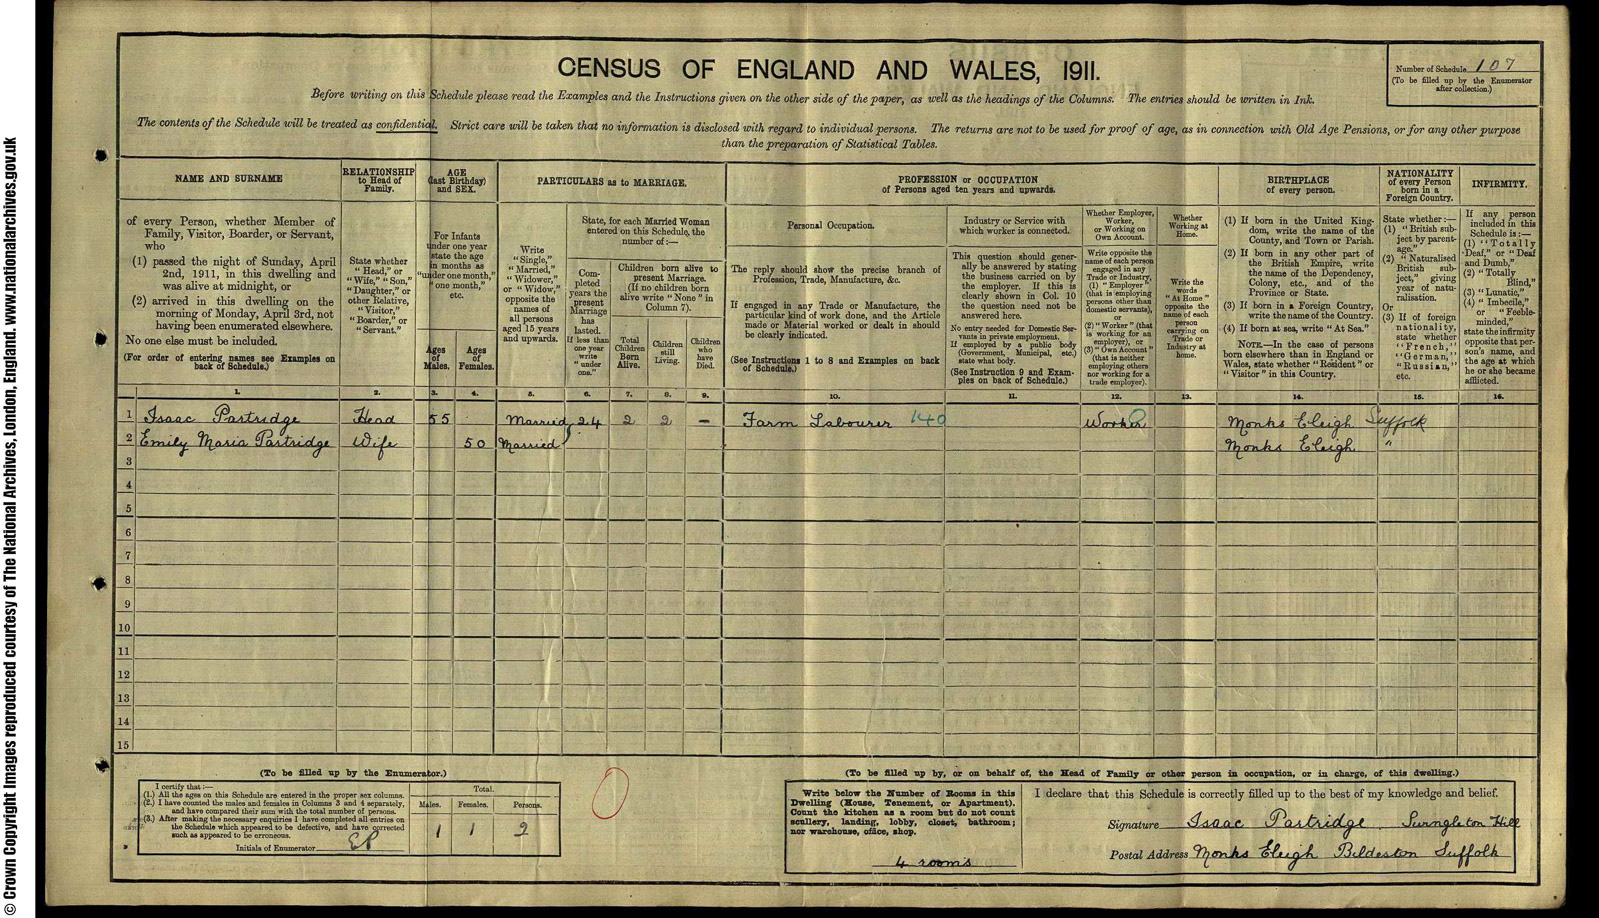 CENSUS OF ENGLAND AND WALES, 1911.
Number of Schedule 107
(To be filled up by the Enumerator
after collection.)
Before writing on this Schedule please read the Examples and the Instructions given on the other side of the paper, as well as the headings of the Columns. The entries should be written in Ink.
The contents of the Schedule will be treated as confidential. Strict care will be taken that no information is disclosed with regard to individual persons. The returns are not to be used for proof of age, as in connection with Old Age Pensions, or for any other purpose
than the preparation of Statistical Tables.
NAME AND SURNAME
of every Person, whether Member of
Family, Visitor, Boarder, or Servant,
who
(1) passed the night of Sunday, April
2nd, 1911, in this dwelling and
was alive at midnight, or
(2) arrived in this dwelling on the
morning of Monday, April 3rd, not
having been enumerated elsewhere.
No one else must be included.
(For order of entering names see Examples on
back of Schedule.)
RELATIONSHIP
to Head of
Family.
State whether
"Head," or
"Wife," "Son,"
"Daughter," or
other Relative,
"Visitor,"
"Boarder," or
"Servant."
AGE
(last Birthday)
and SEX.
For Infants
under one year
state the age
in months as
"under one month,"
"one month,"
etc.
Ages
of
Males.
Ages
of
Females.
PARTICULARS as to MARRIAGE.
Write
"Single,"
"Married,"
"Widower,"
or "Widow,"
opposite the
names of
all persons
aged 15 years
and upwards.
State, for each Married Woman
entered on this Schedule, the
number of:—
Com-
pleted
years the
present
Marriage
has
lasted.
If less than
one year
write
"under
one."
Children born alive to
present Marriage.
(If no children born
alive write "None" in
Column 7).
Total
Children
Born
Alive.
Children
still
Living.
Children
who
have
Died.
PROFESSION or OCCUPATION
of Persons aged ten years and upwards.
Personal Occupation.
The reply should show the precise branch of
Profession, Trade, Manufacture, &c.
If engaged in any Trade or Manufacture, the
particular kind of work done, and the Article
made or Material worked or dealt in should
be clearly indicated.
(See Instructions 1 to 8 and Examples on back
of Schedule.)
Industry or Service with
which worker is connected.
This question should gener-
ally be answered by stating
the business carried on by
the employer. If this is
clearly shown in Col. 10
the question need not be
answered here.
No entry needed for Domestic Ser-
vants in private employment.
If employed by a public body
(Government, Municipal, etc.)
state what body.
(See Instruction 9 and Exam-
ples on back of Schedule.)
Whether Employer,
Worker,
or Working on
Own Account.
Write opposite the
name of each person
engaged in any
Trade or Industry,
(1) "Employer"
(that is employing
persons other than
domestic servants),
or
(2) "Worker" (that
is working for an
employer), or
(3) "Own Account"
(that is neither
employing others
nor working for a
trade employer).
Whether
Working at
Home.
Write the
words
"At Home"
opposite the
name of each
person
carrying on
Trade or
Industry at
home.
BIRTHPLACE
of every person.
(1) If born in the United King-
dom, write the name of the
County, and Town or Parish.
(2) If born in any other part of
the British Empire, write
the name of the Dependency,
Colony, etc., and of the
Province or State.
(3) If born in a Foreign Country,
write the name of the Country.
(4) If born at sea, write "At Sea."
NOTE.—In the case of persons
born elsewhere than in England or
Wales, state whether "Resident" or
"Visitor" in this Country.
NATIONALITY
of every Person
born in a
Foreign Country.
State whether:—
(1) "British sub-
ject by parent-
age."
(2) "Naturalised
British sub-
ject," giving
year of natu-
ralisation.
Or
(3) If of foreign
nationality,
state whether
"French,"
"German,"
"Russian,"
etc.
INFIRMITY.
If any person
included in this
Schedule is:—
(1) "Totally
Deaf," or "Deaf
and Dumb,"
(2) "Totally
Blind,"
(3) "Lunatic,"
(4) "Imbecile,"
or "Feeble-
minded,"
state the infirmity
opposite that per-
son's name, and
the age at which
he or she became
afflicted.
1. 2. 3. 4. 5. 6. 7. 8. 9. 10. 11. 12. 13. 14. 15. 16.
1 Isaac Partridge Head 55 Married 24 2 2 – Farm Labourer 140 Worker Monks Eleigh Suffolk
2 Emily Maria Partridge Wife 50 Married Monks Eleigh "
3
4
5
6
7
8
9
10
11
12
13
14
15
(To be filled up by the Enumerator.)
I certify that:—
(1.) All the ages on this Schedule are entered in the proper sex columns.
(2.) I have counted the males and females in Columns 3 and 4 separately,
and have compared their sum with the total number of persons.
(3.) After making the necessary enquiries I have completed all entries on
the Schedule which appeared to be defective, and have corrected
such as appeared to be erroneous.
Initials of Enumerator EP
Total.
Males. Females. Persons.
1 1 2
(To be filled up by, or on behalf of, the Head of Family or other person in occupation, or in charge, of this dwelling.)
Write below the Number of Rooms in this
Dwelling (House, Tenement, or Apartment).
Count the kitchen as a room but do not count
scullery, landing, lobby, closet, bathroom;
nor warehouse, office, shop.
4 rooms
I declare that this Schedule is correctly filled up to the best of my knowledge and belief.
Signature Isaac Partridge. Hill
Postal Address Monks Eleigh Bildeston Suffolk
© Crown Copyright Images reproduced courtesy of The National Archives, London, England. www.nationalarchives.gov.uk